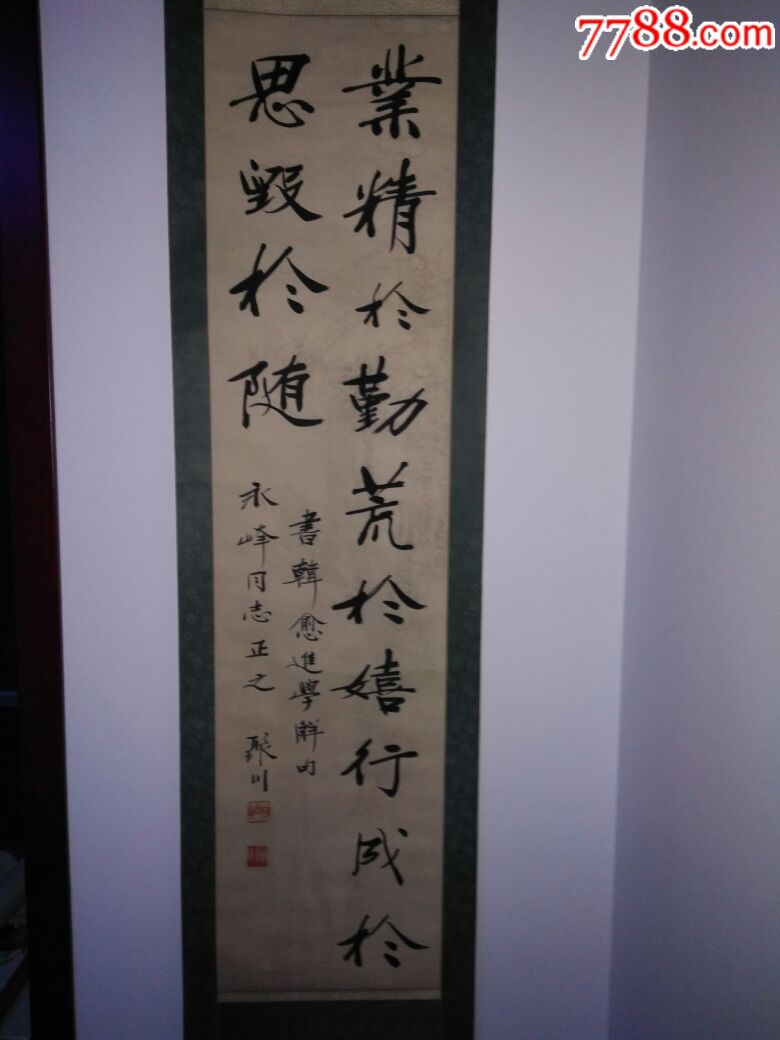 業精於勤荒於嬉行成於
思毀於随
書韓愈進學解句
永峰同志正之 聚川
7788.com